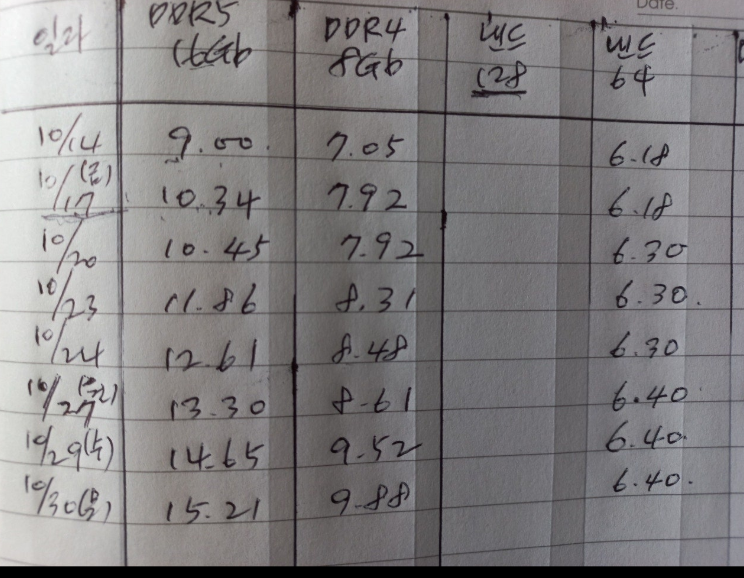 Date.
일자 DDR5 16Gb DDR4 8Gb 낸드 128 낸드 64
10/14 9.00 7.05 6.18
10/17 (금) 10.34 7.92 6.18
10/20 10.45 7.92 6.30
10/23 11.86 8.31 6.30.
10/24 12.61 8.48 6.30
10/27 (월) 13.30 8.61 6.40
10/29(수) 14.65 9.52 6.40.
10/30(목) 15.21 9.88 6.40.